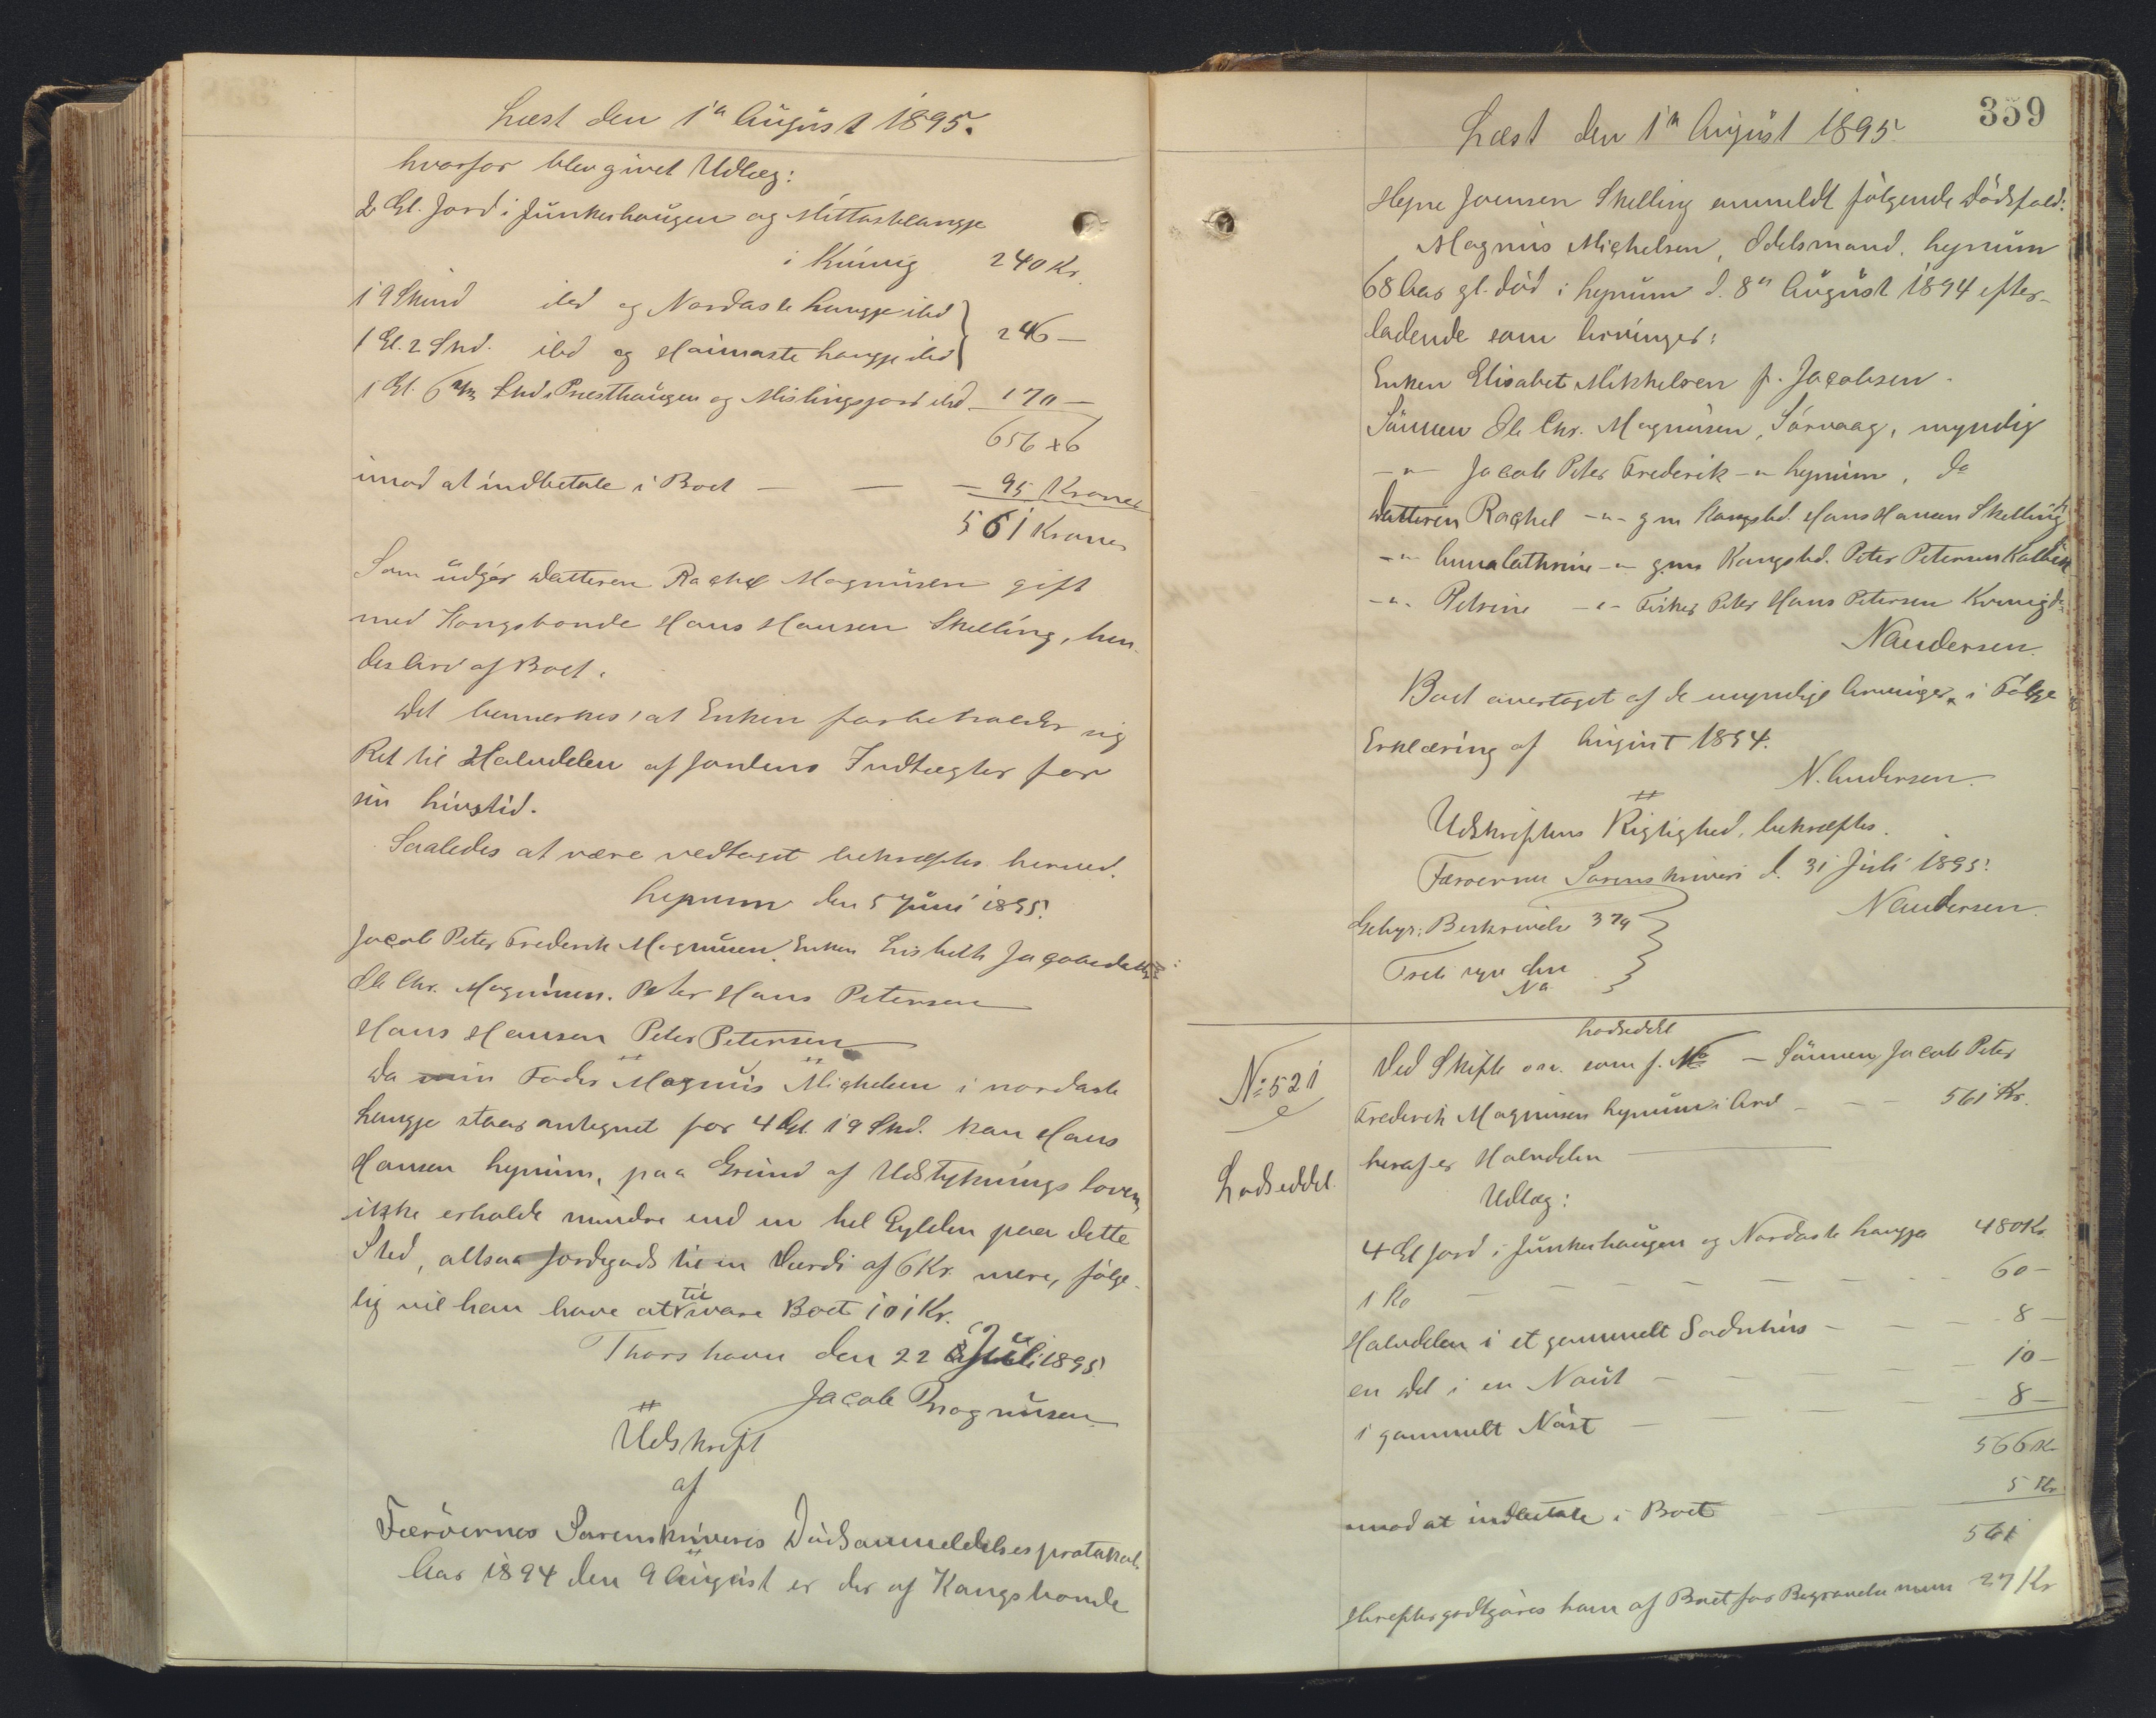 Læst den 1ª August 1895.
hvorfor blev givet Udlæg:
2 Gl. Jord i Junkerhaugen og Mittastelangje
i Kvinnig 240 Kr.
19 Skind ibd og Nordaste hangje ibd
1 Gl. 2 Skd. ibd og Haimaste hangje ibd } 246 —
1 Gl. 6 Skd. Presthaugen og Mislingsjord ibd 170 —
656
imod at indbetale i Boet — — — 95 Kroner
561 Kroner
Som udgør Datteren Rachel Magnusen gift
med Kongsbonde Hans Hansen Skelling, hen-
des Arv af Boet.
Det bemerkes, at Enken forbeholder sig
Ret til Halvdelen af Jordens Indtægter for
sin Livstid.
Saaledes at være vedtaget bekræftes herved.
Lejnum den 5 Juni 1895.
Jacob Peter Frederik Magnusen. Enken Lisbeth Jacobsdatter
Ole Chr. Magnusen. Peter Hans Petersen
Hans Hansen Peter Petersen
Da min Fader Magnus Michelsen i nordaste
hangje staar antegnet for 4 Gl. 19 Skd. kan Hans
Hansen Lejnum, paa Grund af Udstyknings loven,
ikke erholde mindre end en hel Gylden paa dette
Sted, altsaa Jordegods til en Værdi af 6 Kr. mere, følge-
lig vil han have at tilsvare Boet 101 Kr.
Thorshavn den 22 Juli 1895.
Jacob Magnusen
Udskrift
af
Færöernes Sorenskriveris Dödsanmeldelsesprotokol.
Aar 1894 den 9 August er der af Kongsbonde
359
Læst den 1ª August 1895.
Hejne Joensen Skelling anmeldt følgende Dödsfald:
Magnus Michelsen, Odelsmand, Lejnum
68 Aar gl. död i Lejnum d. 8ª August 1894 efter-
ladende som Arvinger:
Enken Elisabet Mikkelsen f. Jacobsen.
Sönnen Ole Chr. Magnusen, Sórvaag, myndig
—"— Jacob Peter Frederik —"— Lejnum, do
Datteren Rachel —"— gm Kongsbd. Hans Hansen Skelling
—"— Anna Cathrine —"— gm Kongsbd. Peter Petersen
—"— Petrine —"— Fisker Peter Hans Petersen Kvinnig
N Andersen.
Boet overtaget af de myndige Arvinger i Følge
Erklæring af August 1894.
N. Andersen.
Udskriftens Rigtighed, bekræftes.
Færöernes Sorenskriveri d. 31 Juli 1895.
N Andersen.
Gebyr: Beskrivelse
No
Nº 521
Lodseddel.
Lodseddel
Ved Skifte osv. som f. No — Sönnen Jacob Peter
Frederik Magnusen Lejnum i Arv — — — 561 Kr.
heraf er Halvdelen
Udlæg:
4 Gl Jord i Junkerhaugen og Nordaste hangje 480 Kr
1 Ko — — — — — 60 —
Halvdelen i et gammelt Sodnhus — — — 8 —
en Del i en Naust — — — 10 —
1 gammelt Nóst — — — 8 —
566 Kr
5 Kr
imod at indbetale i Boet
561
Herefter godtgøres ham af Boet for Begravelse 27 Kr